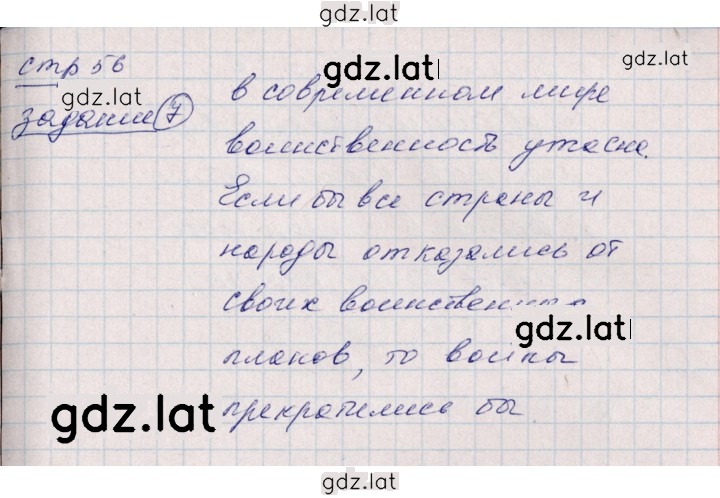 gdz.lat
стр 56
задание 7
в современном мире
воинственность ужасна.
Если бы все страны и
народы отказались от
своих
планов, то войны
прекратились бы
gdz.lat
gdz.lat
gdz.lat
gdz.lat
gdz.lat
gdz.lat